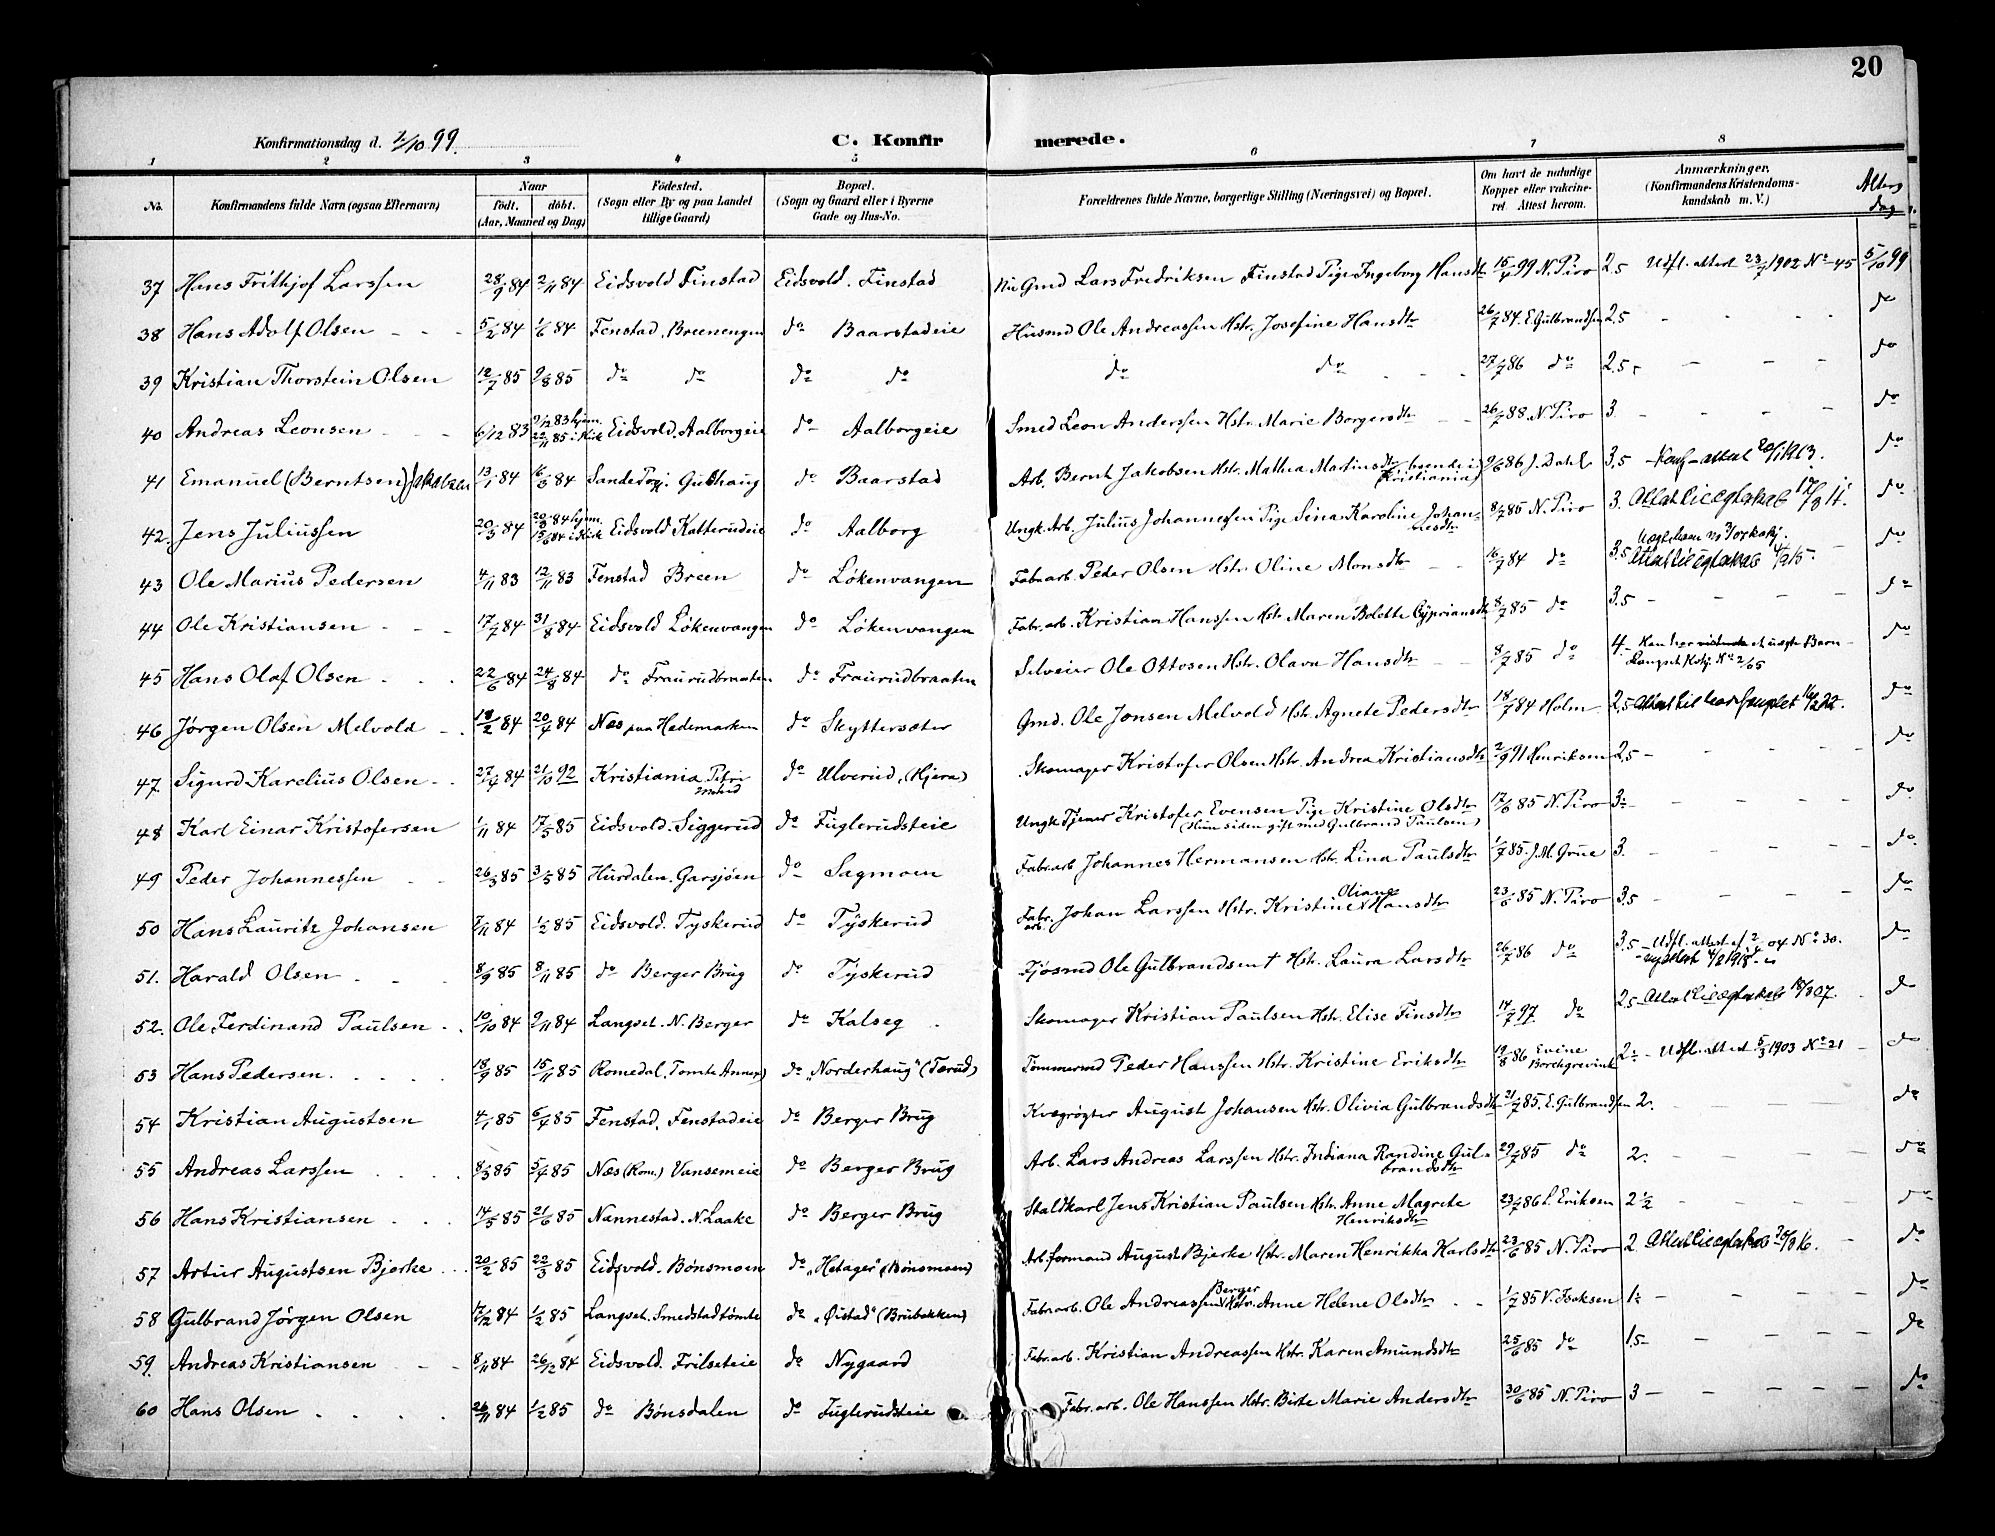 20
Konfirmationsdag d. 1/10 99.
C. Konfirmerede.
1 2 3 4 5 6 7 8
No. Konfirmandens fulde Navn (ogsaa Efternavn) Naar født. døbt. (Aar, Maaned og Dag) Fødested. (Sogn eller By og paa Landet tillige Gaard) Bopæl. (Sogn og Gaard eller i Byerne Gade og Hus-No. Forældrenes fulde Navne, borgerlige Stilling (Næringsvei) og Bopæl. Om havt de naturlige Kopper eller vakcineret. Attest herom. Anmærkninger, (Konfirmandens Kristendomskundskab m. V.) Alters dag
37 Hans Frithjof Larssen 28/9 84 2/11 84 Eidsvold Finstad Eidsvold. Finstad Gmd Lars Fredriksen Finstad Pige Ingeborg Hansdtr 15/4 99 N. Piro 2.5 Udfl. attest 23/7 1902 No 45 5/10 99
38 Hans Adolf Olsen 5/2 84 1/6 84 Fenstad. Breenengen do Baarstadeie Husmd Ole Andreassen Hstr. Josefine Hansdtr 26/7 84. E. Gulbrandsen 2.5 - - - do
39 Kristian Thorstein Olsen 12/7 85 9/8 85 do do do do do do 27/7 86 do 2.5 - - - do
40 Andreas Leonsen 6/12 83 9/12 83 hjem. 22/11 85 i Kirk Eidsvold. Aalborgeie do Aalborgeie Smed Leon Anderssen Hstr. Marie Borgersdtr 26/7 88. N. Piro 3. - - - do
41 Emanuel (Berntsen) Jakobsen 13/1 84 16/3 84 Sande Pgj. Gulhaug do Baarstad Arb. Bernt Jakobsen Hstr. Mathea Martinsdtr boende i Kristiania) 9/6 86 J. Dahl 3.5 - Konf-attest 20/1 1913. do
42. Jens Juliussen 20/3 84 20/3 84 hjem. 15/6 84 i Kirk Eidsvold Katterudeie do Aalborg Ungk. Arb. Julius Johannessen Pige Sina Karoline Johannesdtr 8/7 85 N. Piro 3. do
43 Ole Marius Pedersen 4/11 83 12/11 83 Fenstad Breen do Løkenvangen Fabr.arb. Peder Olsen Hstr. Oline Monsdtr 16/7 84 do 3.5 do
44 Ole Kristiansen 17/7 84 31/8 84 Eidsvold Løkenvangen do Løkenvangen Fabr.arb. Kristian Hanssen Hstr Maren Bolette Cypriansdtr 8/7 85 do 3.5 - - - do
45 Hans Olaf Olsen 22/6 84 24/8 84 do Fraurudbraaten do Fraurudbraaten Selveier Ole Ottosen Hstr. Olava Hansdtr 8/7 85 do 4. - Langset No 2/65 do
46 Jørgen Olsen Melvold 12/2 84 20/4 84 Næs paa Hedemarken do Skyttersæter Gmd. Ole Jonsen Melvold Hstr. Agnete Pedersdtr 18/7 84 Holm 2.5 do
47 Sigurd Karelius Olsen 27/4 84 21/10 92 Kristiania Petri do Ulverud, (Hjera) Skomager Kristofer Olsen Hstr. Andrea Kristiansdtr 2/9 91 Henriksen 2.5 - - - do
48 Karl Einar Kristofersen 1/11 84 17/5 85 Eidsvold. Siggerud do Fuglerudsteie Ungk Tjener Kristofer Evensen Pige Kristine Olsdtr (Hun siden gift med Gulbrand Paulsen) 17/6 85 N. Piro 3 - - - do
49 Peder Johannessen 26/3 85 3/5 85 Hurdalen. Garsjøen do Sagmoen Fabr.arb Johannes Hermansen Hstr. Lina Paulsdtr 1/7 85. J. M. Grue 3. - - - do
50 Hans Lauritz Johansen 7/11 84 1/2 85 Eidsvold. Tyskerud do Tyskerud Fabr. arb. Johan Larssen Hstr. Kristine Oliane Hansdtr 23/6 85 N. Piro 3.5 - - - do
51. Harald Olsen 8/9 85 8/11 85 do Berger Brug do Tyskerud Fjøsmd Ole Gulbrandsen † Hstr. Laura Larsdtr 26/7 86 do 3.5 - Udfl. attest 04 No 30. do
52. Ole Ferdinand Paulsen 10/10 84 9/11 84 Langset. N. Berger do Kalseg Skomager Kristian Paulsen Hstr. Elise Finsdtr 14/7 97 do 2.5 do
53 Hans Pedersen 18/9 85 15/11 85 Romedal. Tomte Annex) do "Norderhaug" (Tærud) Tømmermd Peder Hanssen Hstr. Kristine Eriksdtr 19/8 86 Eveine Borchgrevink 2 - Udfl. attest 5/3 1903 No 21 do
54 Kristian Augustsen 4/1 85 6/4 85 Fenstad. Fenstadeie do Berger Brug Kvægrøgter August Johansen Hstr. Olivia Gulbrandsdtr 21/7 85. E. Gulbrandsen 2. - - - do
55 Andreas Larssen 8/3 85 5/4 85 Næs (Rom.) Vansemeie do Berger Brug Arb. Lars Andreas Larssen Hstr. Indiana Randine Gulbrandsdtr 29/7 85 do 2. do
56 Hans Kristiansen 14/5 85 21/6 85 Nannestad. N. Laake do Berger Brug Staldkarl Jens Kristian Paulsen Hstr. Anne Magrete Henriksdtr 23/7 86 L. Eriksen 2 1/2 - - - do
57 Artur Augustsen Bjerke 20/2 85 22/3 85 Eidsvold. Bønsmoen do "Hetager" (Bønsmoen) Arb.formand August Bjerke Hstr. Maren Henrikka Karlsdtr 23/6 85 N. Piro 2. do
58 Gulbrand Jørgen Olsen 17/12 84 1/2 85 Langset. Smedstadtomte do "Øistad" (Brubakken) Fabr.arb. Ole Andreassen Berger Hstr. Anne Helene Olsdtr 1/7 85 V. Isaksen 1 - - - do
59. Andreas Kristiansen 8/11 84 26/12 84 Eidsvold. Frilseteie do Nygaard Fabr.arb. Kristian Andreassen Hstr. Karen Amundsdtr 25/6 85 do 1.5 - - - do
60 Hans Olsen 26/11 84 1/2 85 do Bønsdalen do Fuglerudsteie Fabr.arb. Ole Hanssen Hstr. Birte Marie Andersdtr 30/6 85 N. Piro 3 - - - do